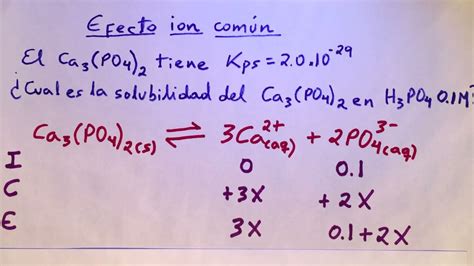 Efecto ion común
El Ca₃(PO₄)₂ tiene Kps = 2.0.10⁻²⁹
¿Cual es la solubilidad del Ca₃(PO₄)₂ en H₃PO₄ 0.1M?
Ca₃(PO₄)₂(s) ⇌ 3Ca²⁺(aq) + 2PO₄³⁻(aq)
I 0 0.1
C +3X +2X
E 3X 0.1+2X